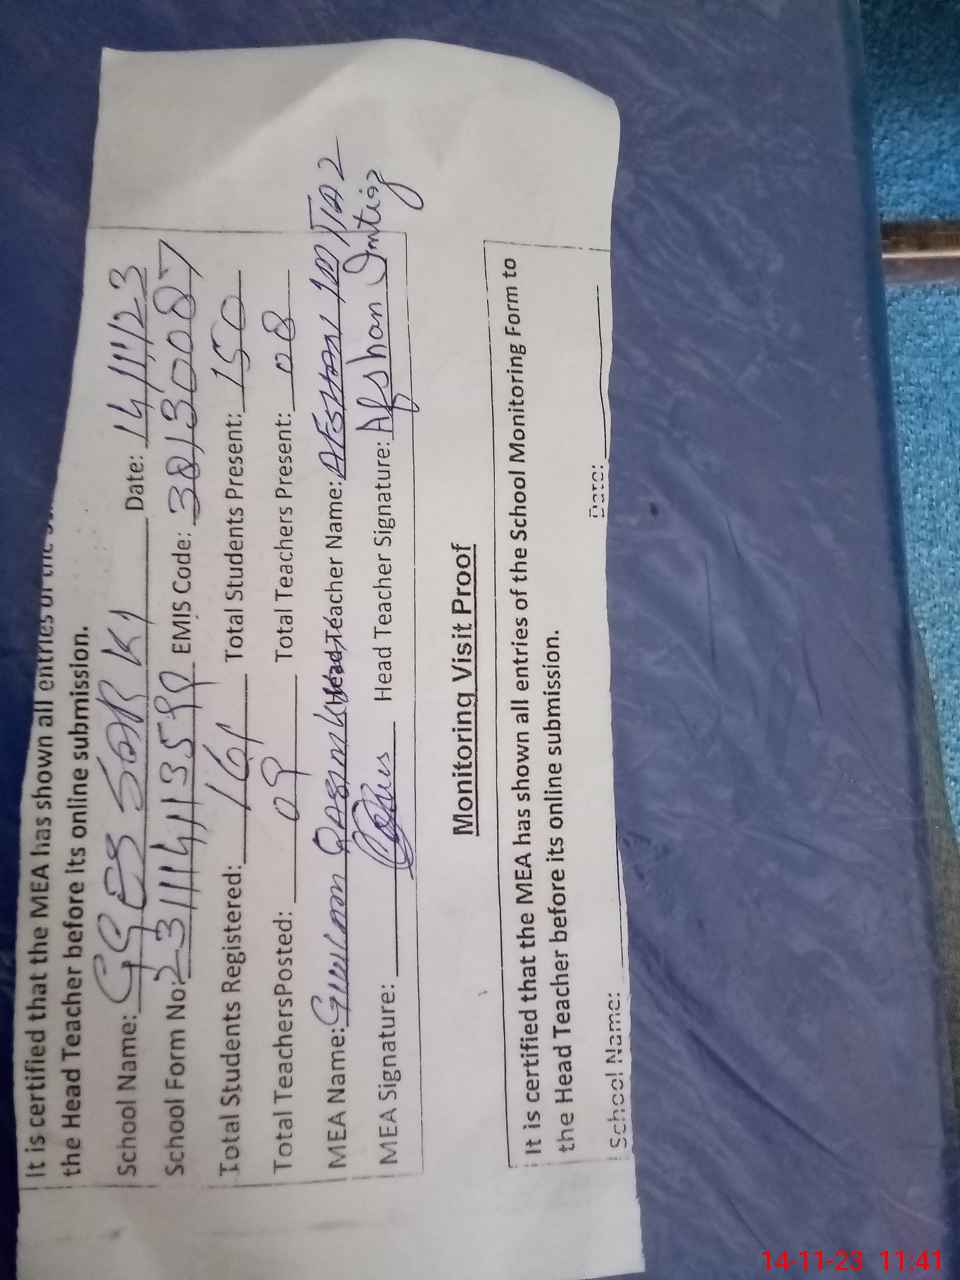 It is certified that the MEA has shown all entries of the
the Head Teacher before its online submission.
School Name: GGES SARKI Date: 14/11/23
School Form No: EMIS Code: 38130087
Total Students Registered: 161 Total Students Present: 150
Total TeachersPosted: 09 Total Teachers Present: 08
MEA Name: Head Teacher Name: AFSHAN IMTIAZ
MEA Signature: Head Teacher Signature: Afshan Imtiaz
Monitoring Visit Proof
It is certified that the MEA has shown all entries of the School Monitoring Form to
the Head Teacher before its online submission.
School Name: Date:
14-11-23 11:41